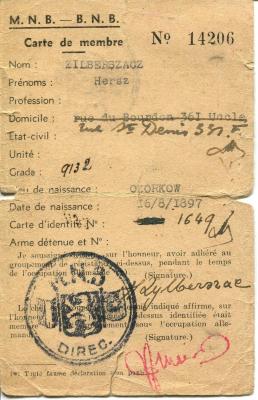 M. N. B. — B. N. B.
Carte de membre Nº 14206
Nom : ZILBERSZACZ
Prénoms : Hersz
Profession :
Domicile : rue du Bourdon 361 Uccle
rue St Denis 337 F
Etat-civil :
Unité :
Grade :
9132
de naissance : OZORKOW
Date de naissance : 16/8/1897
Carte d'identité Nº : 1649
Arme détenue et Nº :
Je soussigné sur l'honneur, avoir adhéré au
groupement ci-dessus, pendant le temps
de l'occupation
(Signature.)
Zylberszac
Le indiqué affirme, sur
l'honneur dessus identifié était
membre l'occupation alle-
mande.
(Signature.)
M.N.B
DIREC.
(*) Toute fausse déclaration